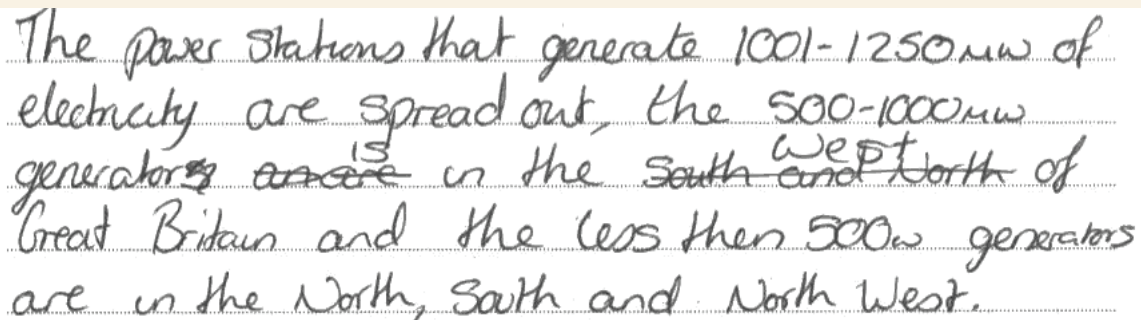 The power stations that generate 1001-1250MW of
electricity are spread out, the 500-1000MW
generator is in the West of
Great Britain and the less then 500w generators
are in the North, South and North West.